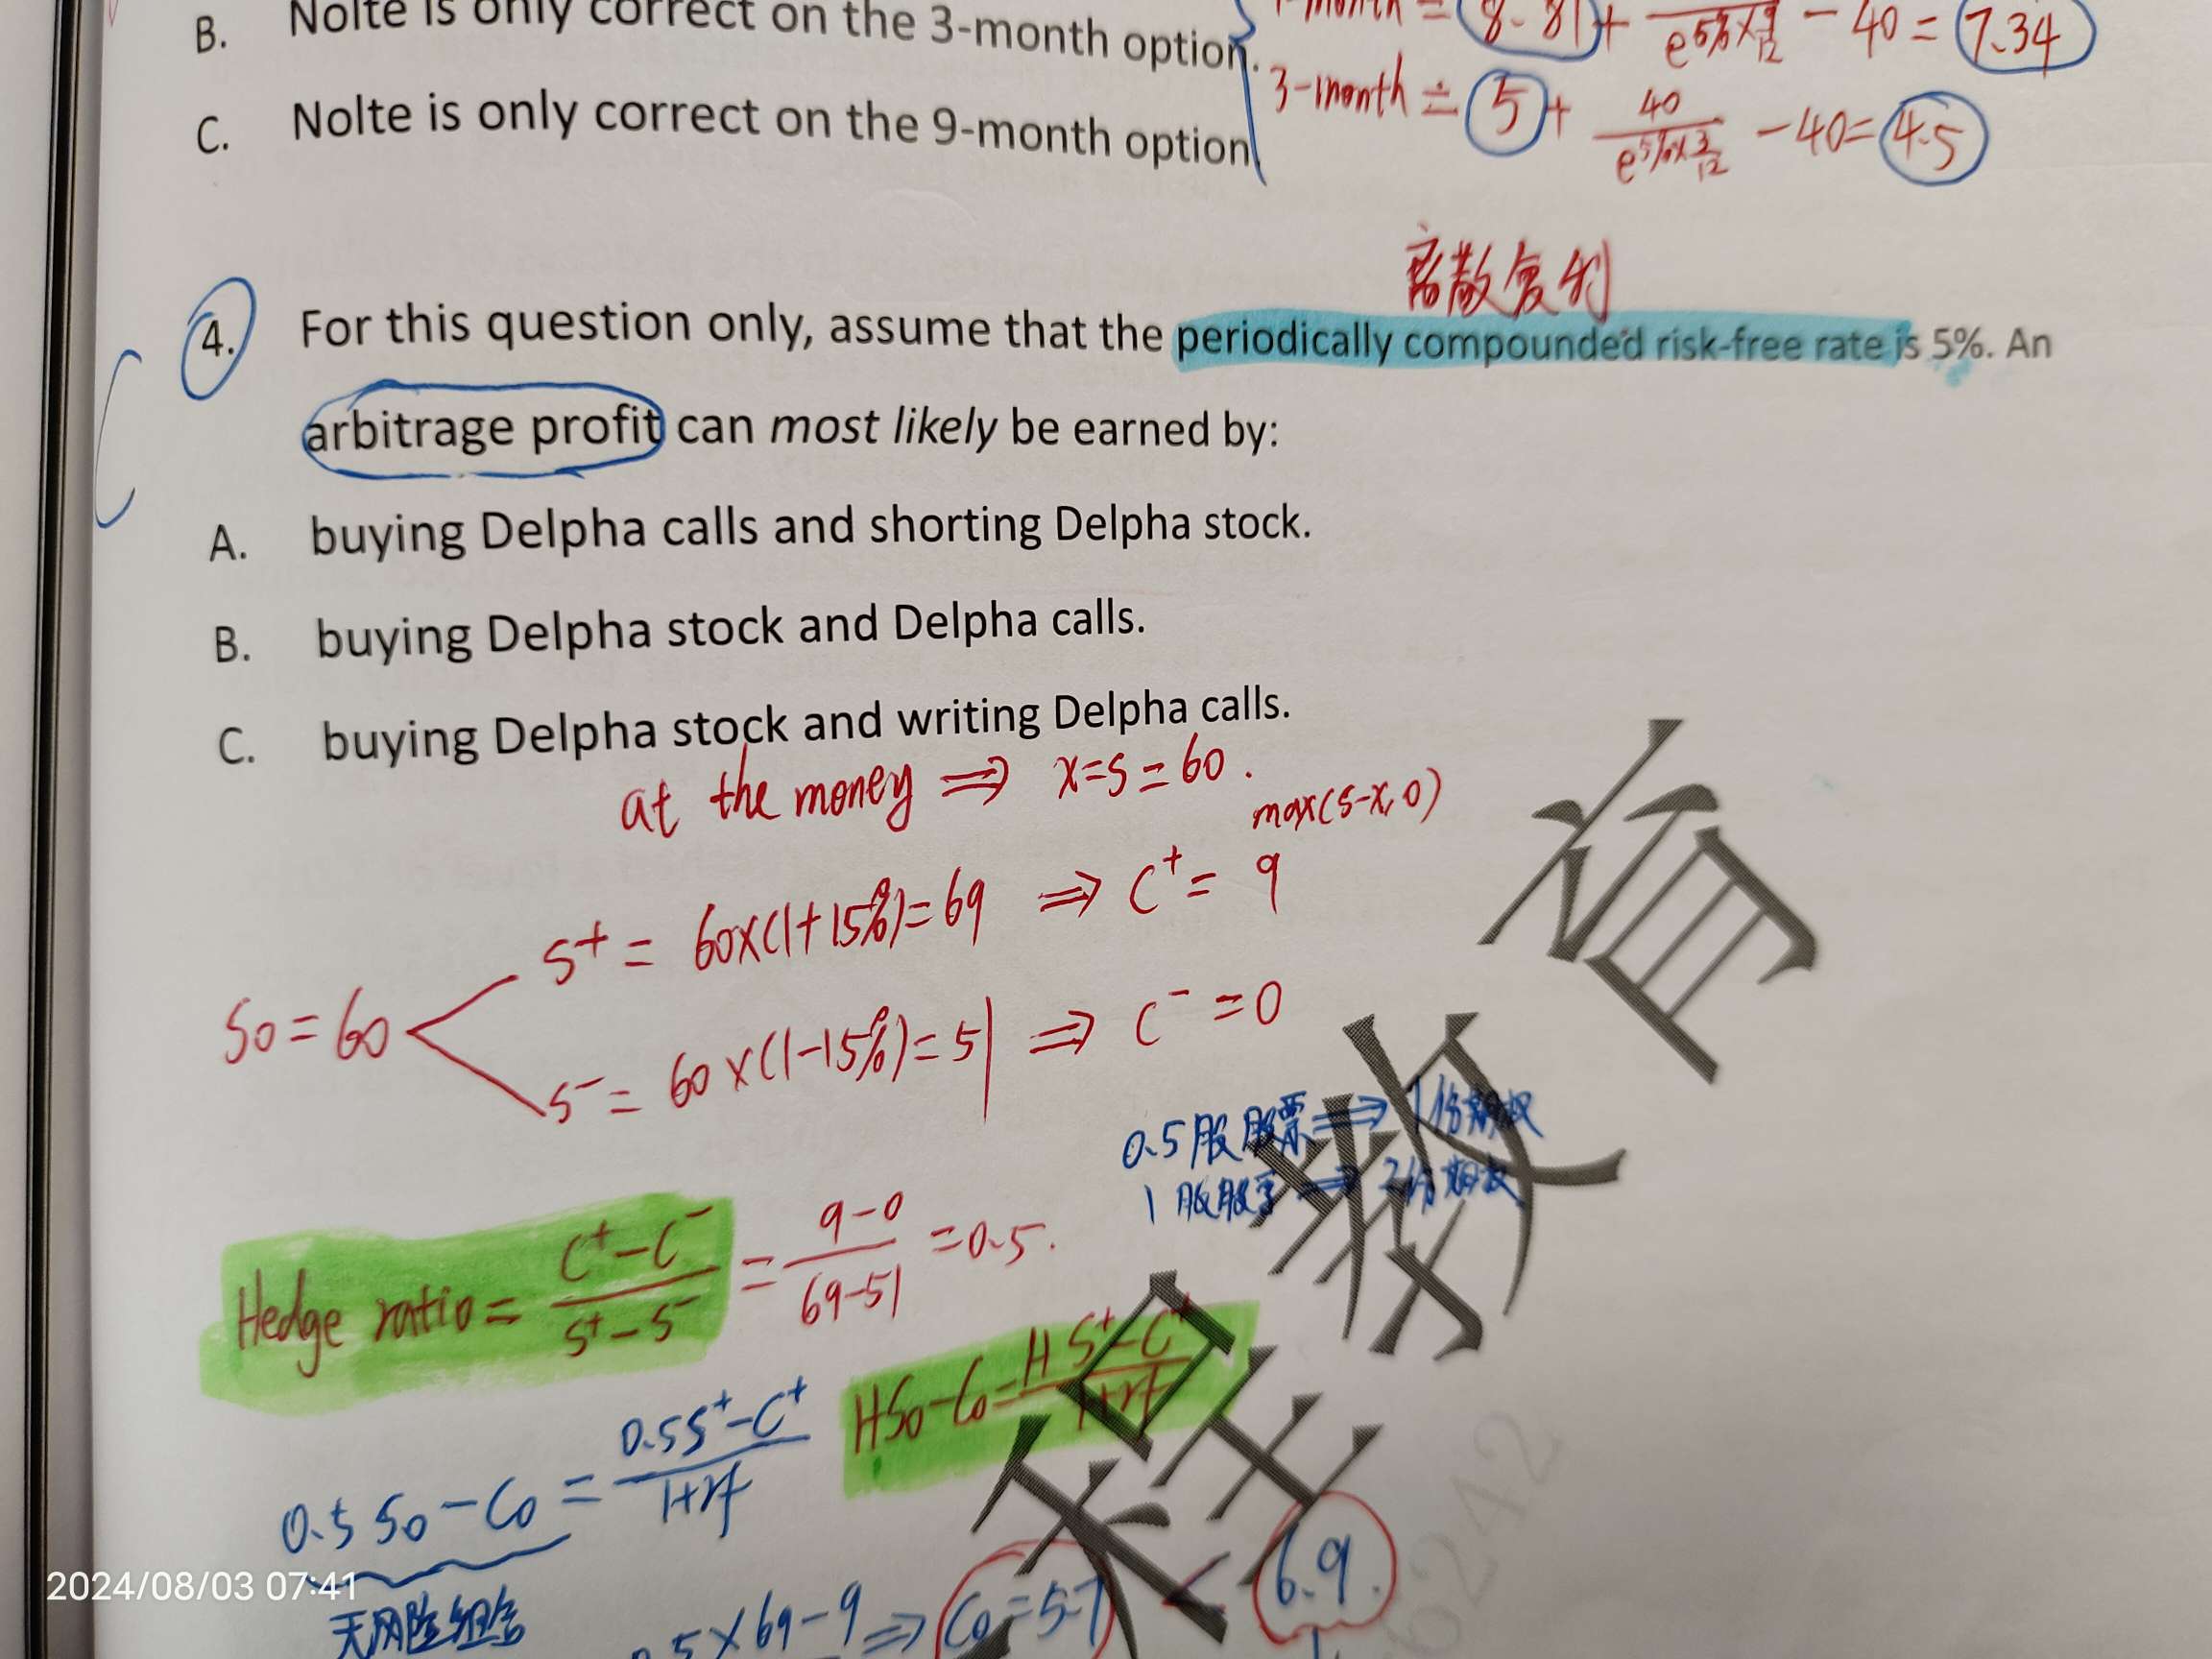 B. Nolte is only correct on the 3-month option.
= 8.81 + e^{5%×9/12} - 40 = 7.34
C. Nolte is only correct on the 9-month option
3-month = 5 + 40/e^{5%×3/12} - 40 = 4.5
离散复利
4. For this question only, assume that the periodically compounded risk-free rate is 5%. An
arbitrage profit can most likely be earned by:
C
A. buying Delpha calls and shorting Delpha stock.
B. buying Delpha stock and Delpha calls.
C. buying Delpha stock and writing Delpha calls.
at the money ⇒ x=s=60.
max(s-x,0)
S+ = 60×(1+15%)=69 ⇒ C+ = 9
S0=60
S- = 60×(1-15%)=51 ⇒ C- =0
0.5股股票 ⇒ 1份期权
1股股票 ⇒ 2份期权
Hedge ratio = C+-C-/S+-S- = 9-0/69-51 =0.5.
HS0-C0 = HS+-C+/1+rf
0.5S0-C0 = 0.5S+-C+/1+rf
无风险组合
.5×69-9 ⇒ C0=5.7 < 6.9.
6242
2024/08/03 07:41